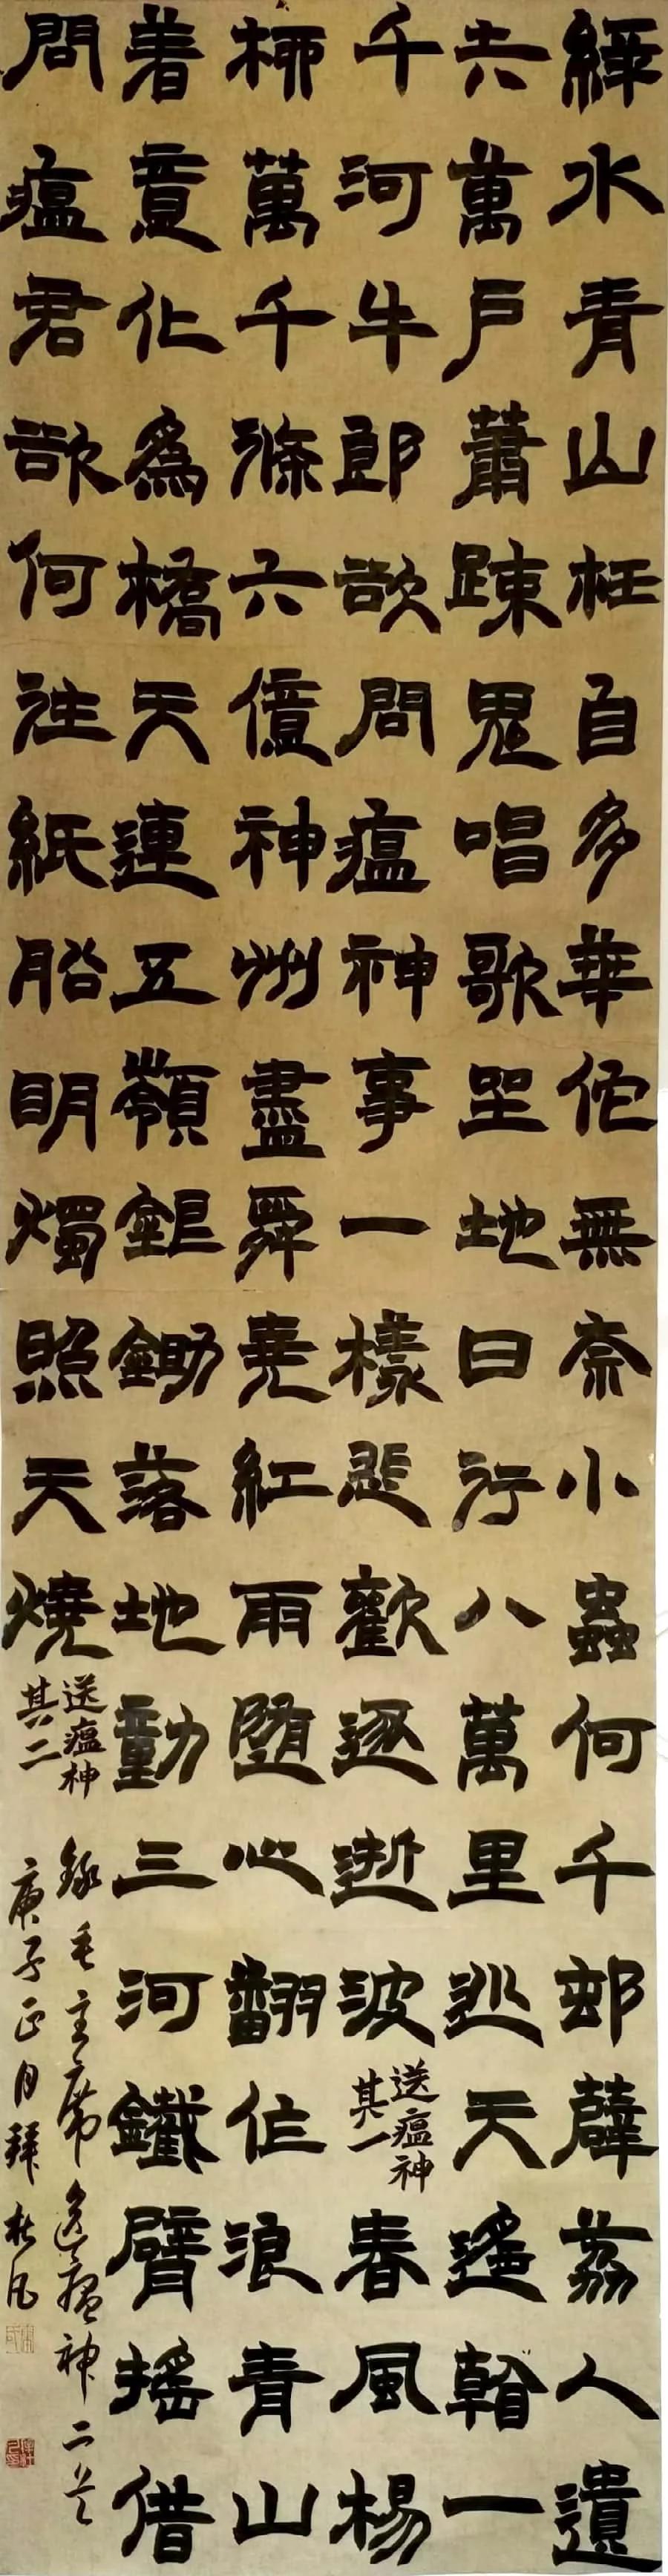 綠水青山枉自多華佗無奈小蟲何千邨薜荔人遺
矢萬戶蕭疎鬼唱歌坐地日行八萬里巡天遙看一
千河牛郎欲問瘟神事一樣悲歡逐逝波
送瘟神
其一
春風楊
柳萬千條六億神州盡舜堯紅雨隨心翻作浪青山
着意化爲橋天連五嶺銀鋤落地動三河鐵臂搖借
問瘟君欲何往紙船明燭照天燒
送瘟神
其二
錄毛主席送瘟神二首
庚子正月拜